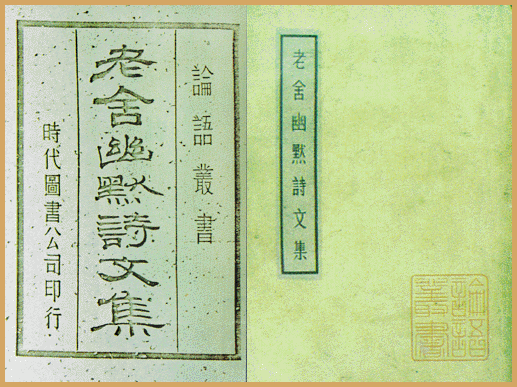 論語叢書
老舍幽默詩文集
時代圖書公司印行
老舍幽默詩文集
論語叢書